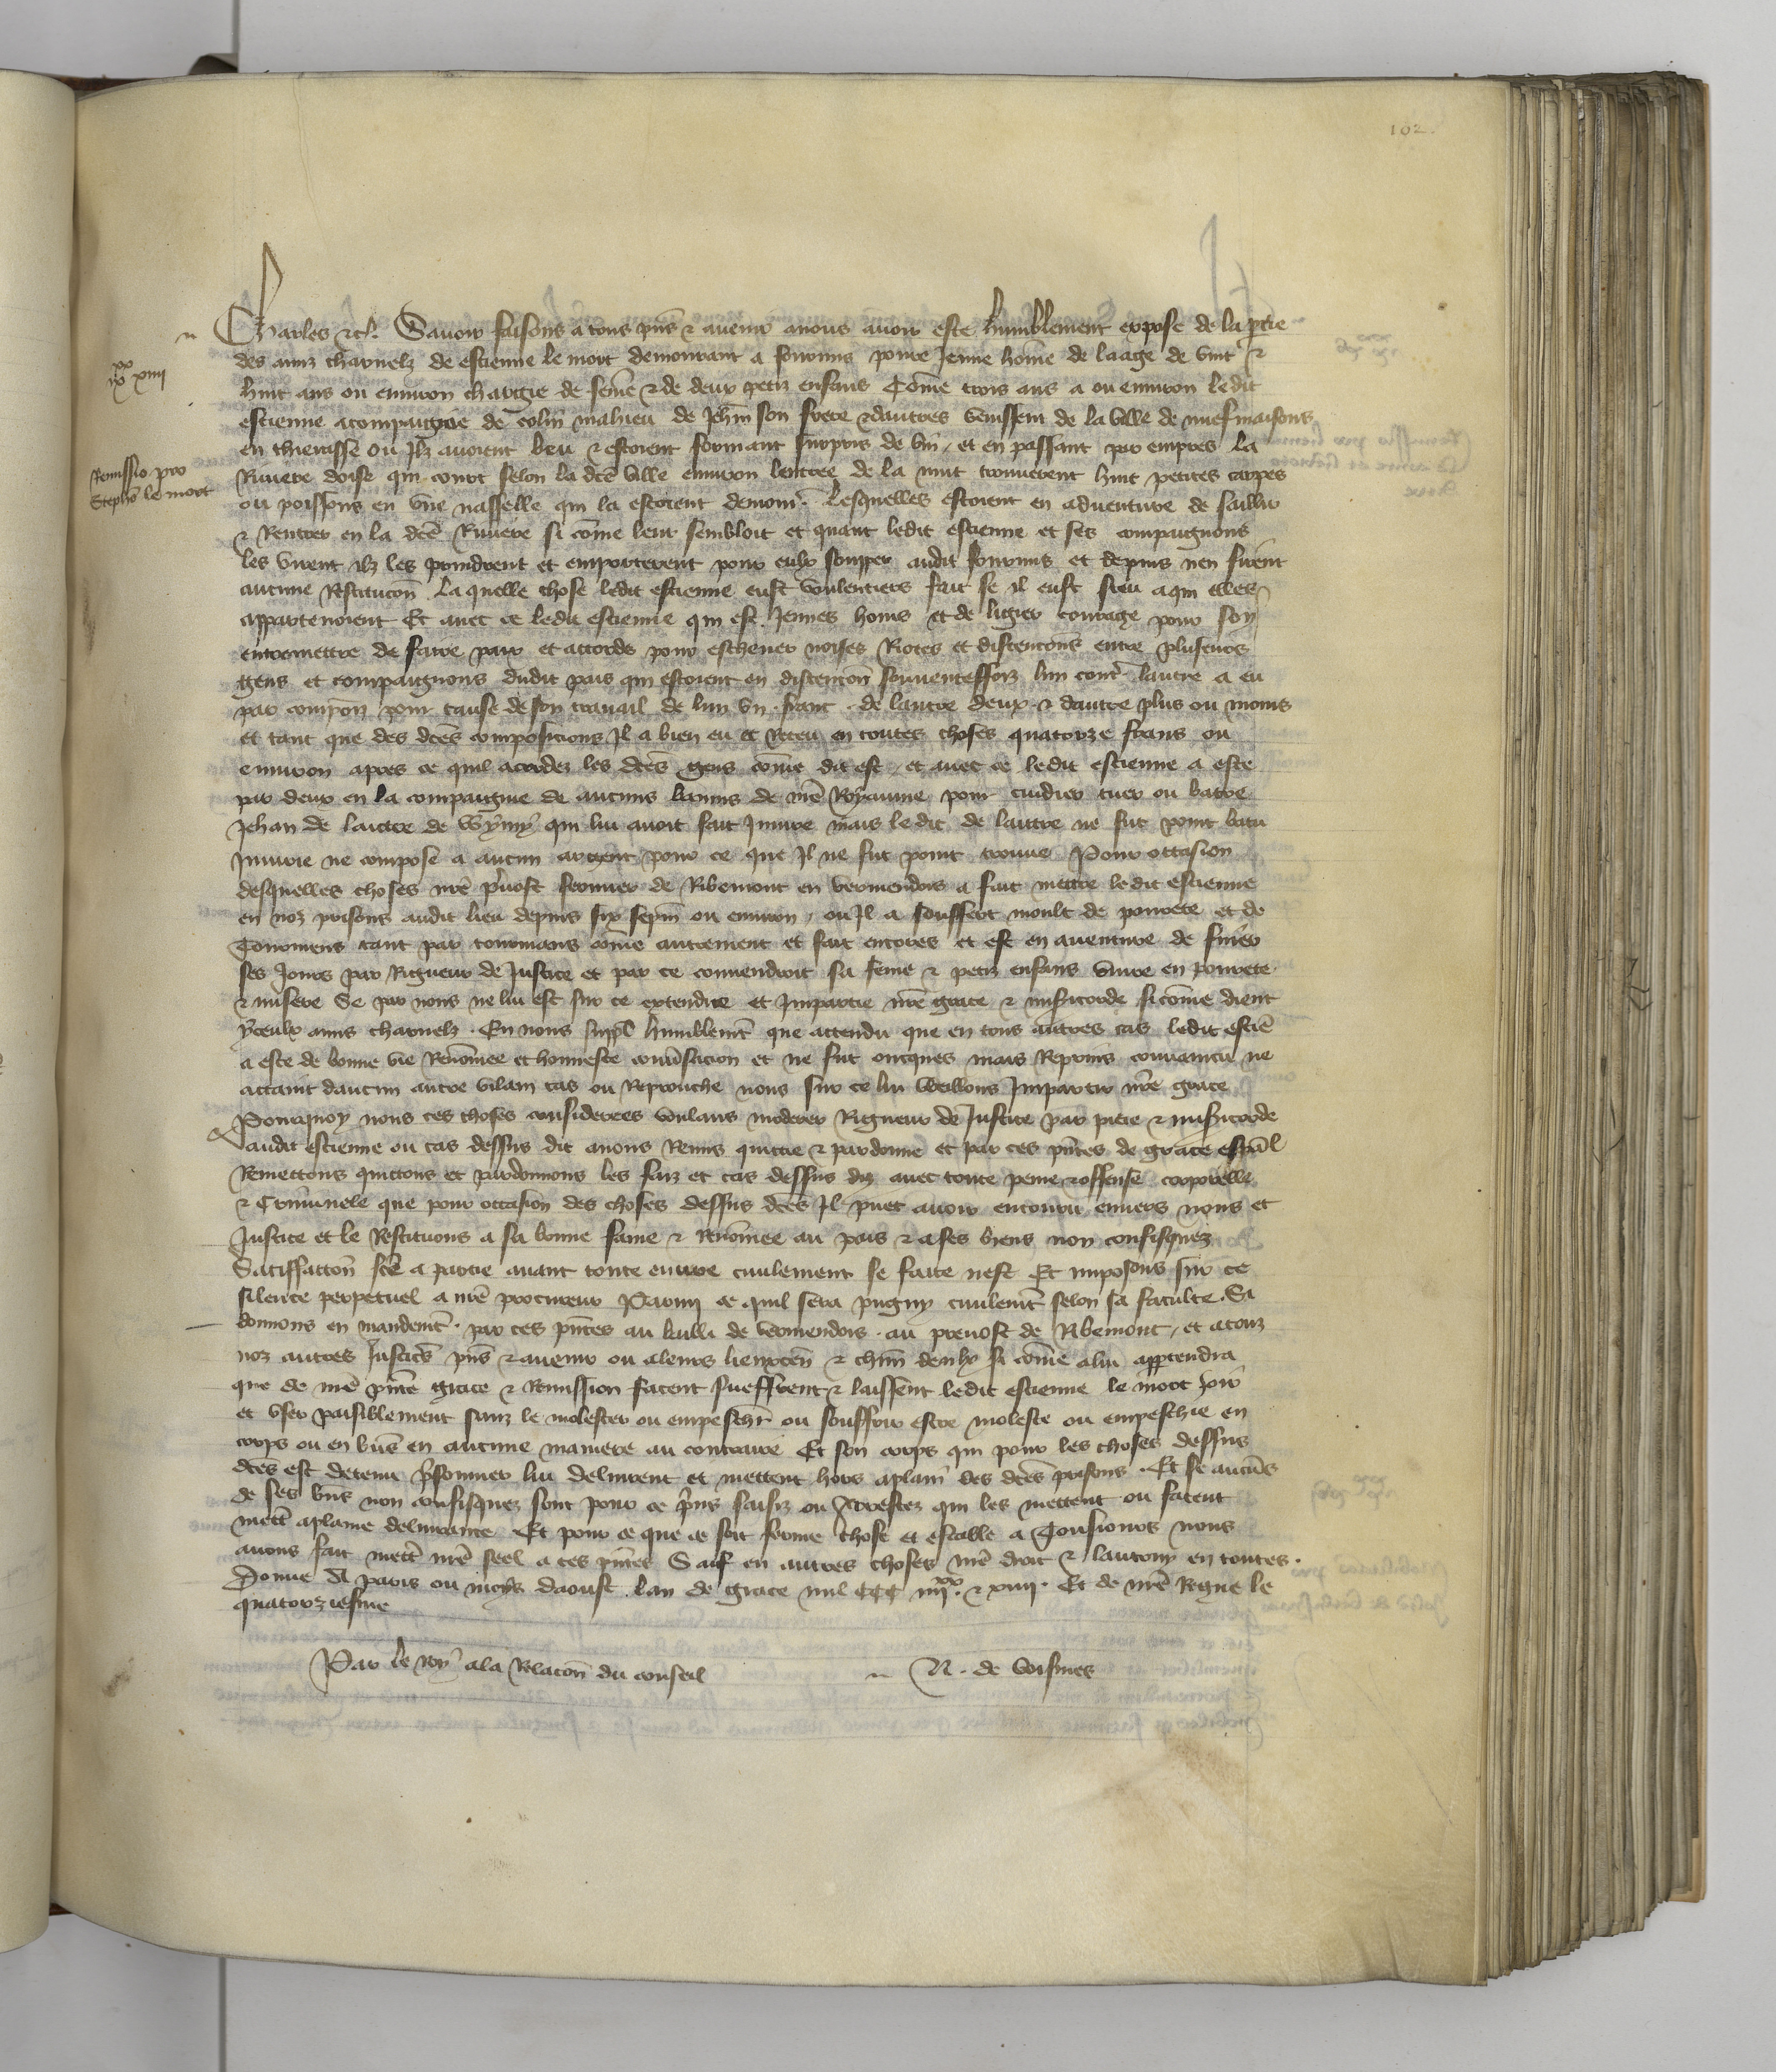 102.
Charles etc. Savoir faisons a tous pñs & avenir a nous avoir este humblement expose de la ptie
des amis charnelz de estienne le mort demourant a sourmis povre jeune hõme de laage de vint &
huit ans ou environ chargie de fẽme & de deux petiz enfans Cõme trois ans a ou environ ledit
estienne acompaignie de colin mahieu de Jehñ son frere & dautres venissent de la ville de nuefmaisons
en thierasse ou Jlz avoient beu & estoient forment surpris de vin / et en passant par empres la
Riviere doise qui court selon la dcẽ ville environ lentree de la nuit trouverent huit petites carpes
ou poissons en une nasselle qui la estoient demour̃. Lesquelles estoient en adventure de saillir
& Rentrer en la dcẽ Riviere si cõme leur sembloit et quant ledit estienne et ses compaignons
les virent ilz les prindrent et emporterent pour eulx souper audit sourmis et depuis nen firent
aucune Restitucoñ La quelle chose ledit estienne eust voulentiers fait se il eust sceu a qui elles
appartenoient Et avec ce ledit estienne qui est Jeunes homs et de ligier courage pour soy
entremettre de faire paix et accords pour eschever noises Riotes et discencions entre plusieurs
gens et compaignons dudit pais qui estoient en discencoñ souventesfoiz lun contr̃ lautre a eu
par compoz pour cause de son travail de lun un franc . de lautre deux . & dautre plus ou moins
et tant que des dcẽs composicions Jl a bien eu et Receu en toutes choses quatorze frans ou
environ apres ce quil acordez les dcẽs gens cõme dit est / et avec ce ledit estienne a este
par deux en la compaignie de aucuns bannis de nr̃e Royaume pour cuidier tuer ou batre
Jehan de laictre de Wymy qui lui avoit fait Jniure mais ledit de laittre ne fut point batu
Jniurie ne compose a aucun argent pour ce que Jl ne fut point trouve Pour occasion
desquelles choses nr̃e p̃vost fermier de Ribemont en vermendois a fait mettre ledit estienne
en noz prisons audit lieu depuis six sepm̃ ou environ / ou Jl a souffert moult de povrete et de
Tourmens tant par tourmans cõme autrement et fait encores et est en aventure de finer
ses Jours par Rigueur de Justice et par ce convendroit sa fẽme & petiz enfans vivre en povrete
& misere Se par nous ne lui est sur ce extendue et Jmpartie nr̃e grace & misĩcorde si cõme dient
yceulx amis charnelz . En nous supp̃l humblemt̃ que attendu que en tous autres cas ledit estiẽ
a este de bonne vie Renõmee et honneste convsacion et ne fut oncques mais Repris convaincu ne
attaint daucun autre vilain cas ou Reprouche nous sur ce lui veillons Jmpartir nr̃e grace
Pourquoy nous ces choses considerees voulans moderer Rigueur de Justice par pitie & misĩcorde
audit estienne ou cas dessus dit avons Remis quictie & pardonne et par ces pñtes de grace esp̃al
Remettons quictons et pardonnons les faiz et cas dessus diz avec toute peine & offense corporelle
& Criminele que pour occasion des choses dessus dcẽs Jl puet avoir encouru envers nous et
Justice et le Restituons a sa bonne fame & Renõmee au pais & a ses biens non confisquez
Satisfaccoñ fc̃e a partie avant toute euvre civilement se faite nest Et imposons sur ce
silence perpetuel a nr̃e procureur Parmi ce quil sera pugny civilemt̃ selon sa faculte . Si
donnons en mandemt̃ . par ces pñtes au bailli de vermendois . au prevost de Ribemont / et a touz
noz autres Justicẽs pñs & avenir ou a leurs lieuxteñ & chm̃ deulx si cõme a lui appartendra
que de nr̃e pñte grace & Remission facent sueffrent & laissent ledit estienne le mort joir
et user paisiblement sanz le molester ou empeschr̃ ou souffrir estre moleste ou empeschie en
corps ou en biẽs en aucune maniere au contraire Et son corps qui pour les choses dessus
dcẽs est detenu p̃sonnier lui delivrent et mettent hors a plain des dcẽs prisons . Et se aucũs
de ses biẽs non confisquez sont pour ce p̃ns saisiz ou Arrestez qui les mettent ou facent
mett̃ a plaine delivrance Et pour ce que ce soit ferme chose et estable a Tousiours nous
avons fait mett̃ nr̃e seel a ces pñtes Sauf en autres choses nr̃e droit & lautruy en toutes .
Donne A paris ou moys daoust lan de grace mil CCC iiijxx. & xiiij . Et de nr̃e Regne le
quatorziesme
Par le Roy a la Relacoñ du conseil
N . de voisines
xx
ix xiiij
Remissio pro
Stepho le mort